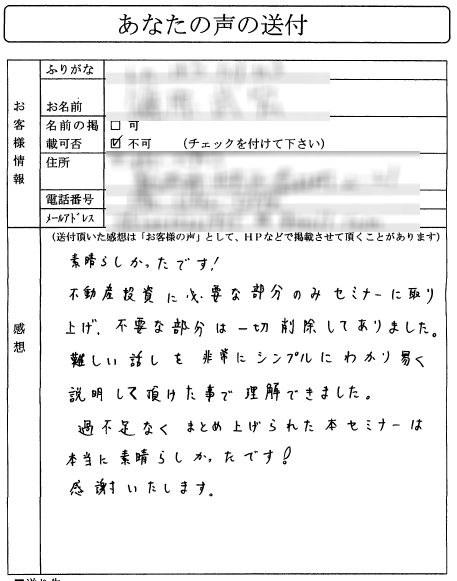 あなたの声の送付
お客様情報
ふりがな
お名前
名前の掲載可否
□ 可
☑ 不可 (チェックを付けて下さい)
住所
電話番号
メールアドレス
感想
(送付頂いた感想は「お客様の声」として、HPなどで掲載させて頂くことがあります)
素晴らしかったです!
不動産投資に必要な部分のみセミナーに取り
上げ、不要な部分は一切削除してありました。
難しい話しを非常にシンプルにわかり易く
説明して頂けた事で理解できました。
過不足なくまとめ上げられた本セミナーは
本当に素晴らしかったです!
感謝いたします。